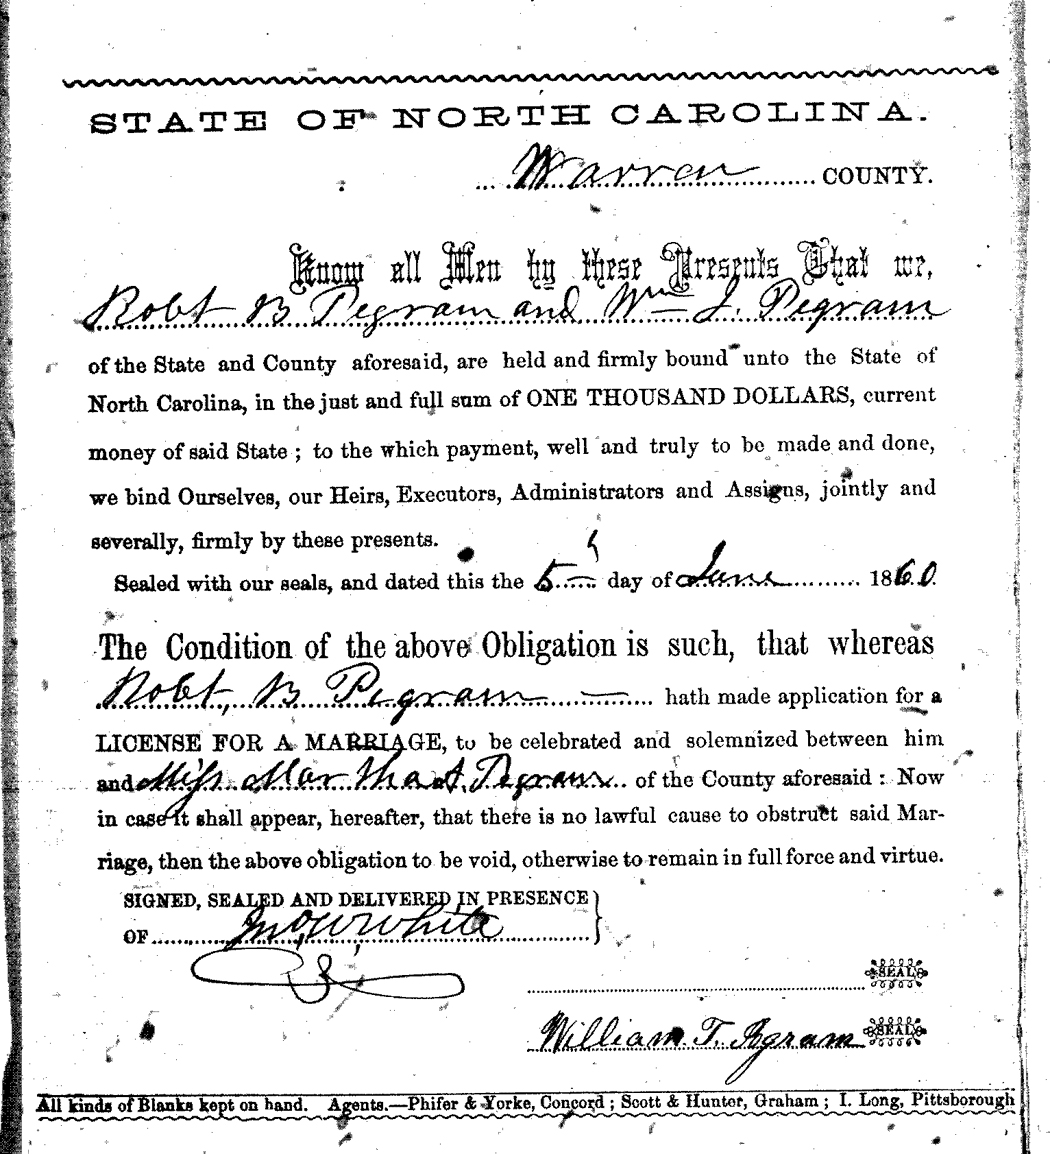 STATE OF NORTH CAROLINA.
Warren COUNTY.
Know all Men by these Presents That we,
Robt B Pegram and Wm J. Pegram
of the State and County aforesaid, are held and firmly bound unto the State of
North Carolina, in the just and full sum of ONE THOUSAND DOLLARS, current
money of said State ; to the which payment, well and truly to be made and done,
we bind Ourselves, our Heirs, Executors, Administrators and Assigns, jointly and
severally, firmly by these presents.
Sealed with our seals, and dated this the 5 day of June 1860.
The Condition of the above Obligation is such, that whereas
Robt, B Pegram hath made application for a
LICENSE FOR A MARRIAGE, to be celebrated and solemnized between him
and Miss Martha A. Pegram of the County aforesaid : Now
in case it shall appear, hereafter, that there is no lawful cause to obstruct said Mar-
riage, then the above obligation to be void, otherwise to remain in full force and virtue.
SIGNED, SEALED AND DELIVERED IN PRESENCE
OF Jno W White
SEAL
William T. Pegram SEAL
All kinds of Blanks kept on hand. Agents.—Phifer & Yorke, Concord ; Scott & Hunter, Graham ; I. Long, Pittsborough